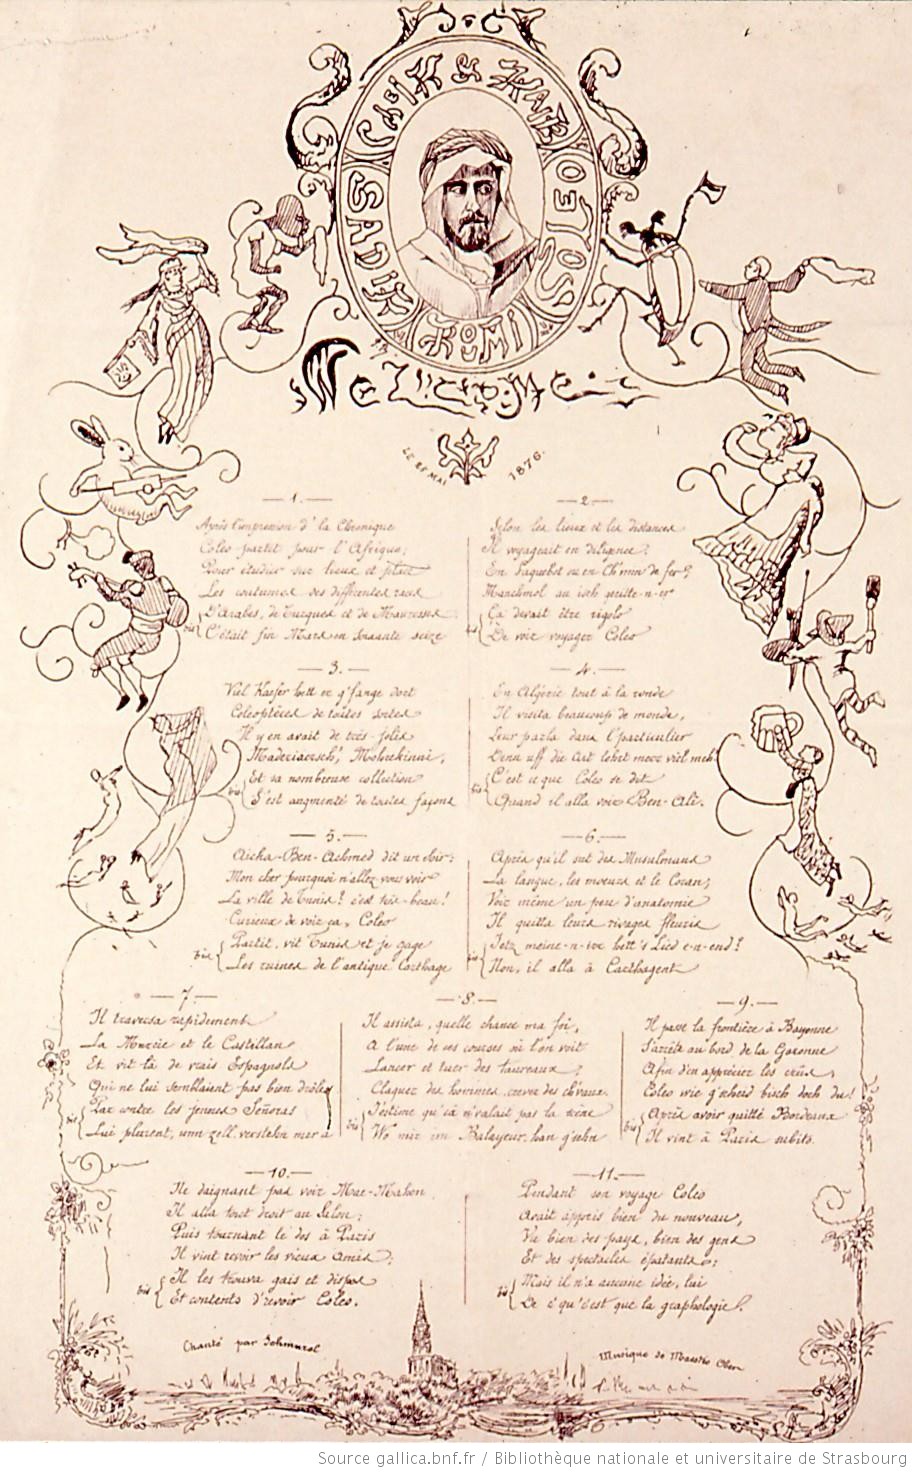 CHEIK EL KATEB
COLÉO
SADIK
ROUMI
Welcome
LE 25 MAI 1876.
— 1. —
Après l'impression d' la Chronique
Coleo partit pour l'Afrique;
Pour étudier sur lieux et place
Les coutumes des différentes races
bis { D'Arabes, de Turques et de Mauresses
C'était fin Mars en soixante seize
— 2. —
Selon les lieux et les distances
Il voyageait en diligence?
En Paquebot ou en Ch'min de fer?
Manchmol au isch geritte-n-er
bis { Ça devait être rigolo
De voir voyager Coleo
— 3. —
Viel Kaefer hett er g'fange dort
Coléoptères de toutes sortes
Il y en avait de très jolis
Et sa nombreuse collection
bis { S'est augmenté de toutes façons
— 4. —
En Algérie tout à la ronde
Il visita beaucoup de monde,
Leur parla dans l'particulier
Denn uff die Art lehrt merr viel meh.
bis { C'est ce que Coleo se dit
Quand il alla voir Ben-Ali.
— 5. —
Aicha-Ben-Achmed dit un soir:
Mon cher pourquoi n'allez vous voir
La ville de Tunis? c'est très-beau!
Curieux de voir ça, Coleo
bis { Partit, vit Tunis et je gage
Les ruines de l'antique Carthage
— 6. —
Après qu'il sut des Musulmans
La langue, les moeurs et le Coran;
Voir même un peu d'anatomie
Il quitta leurs rivages fleuris
bis { Jetz meine-n-ihr hett's Lied e-n-end?
Non, il alla à Carthagent
— 7. —
Il traversa rapidement
La Murcie et le Castellan
Et vit là de vrais Espagnols
Qui ne lui semblaient pas bien drôles
bis { Par contre les jeunes Señoras
Lui plurent, unn zell verstehn mer a
— 8. —
Il assista, quelle chance ma foi,
A l'une de ces courses où l'on voit
Lancer et tuer des taureaux;
Claquer des hommes, crever des ch'vaux.
bis { J'estime qu'ça n'valait pas la scène
Wo mir im Balayeur han g'sehn
— 9. —
Il passe la frontière à Bayonne
S'arrête au bord de la Garonne
Afin d'en apprécier les crûs,
Coleo wie g'scheid bisch doch du!
bis { Après avoir quitté Bordeaux
Il vint à Paris subito.
— 10. —
Ne daignant pas voir Mac-Mahon
Il alla tout droit au Salon;
Puis tournant le dos à Paris
Il vint revoir les vieux amis;
bis { Il les trouva gais et dispos
Et contents d'revoir Coleo.
— 11. —
Pendant son voyage Coleo
Avait appris bien du nouveau,
Vu bien des pays, bien des gens
Et des spectacles épatants;
bis { Mais il n'a aucune idée, lui
De c'qu'c'est que la graphologie!
Chanté par Schmurol
Musique de Maestro Oben
Source gallica.bnf.fr / Bibliothèque nationale et universitaire de Strasbourg